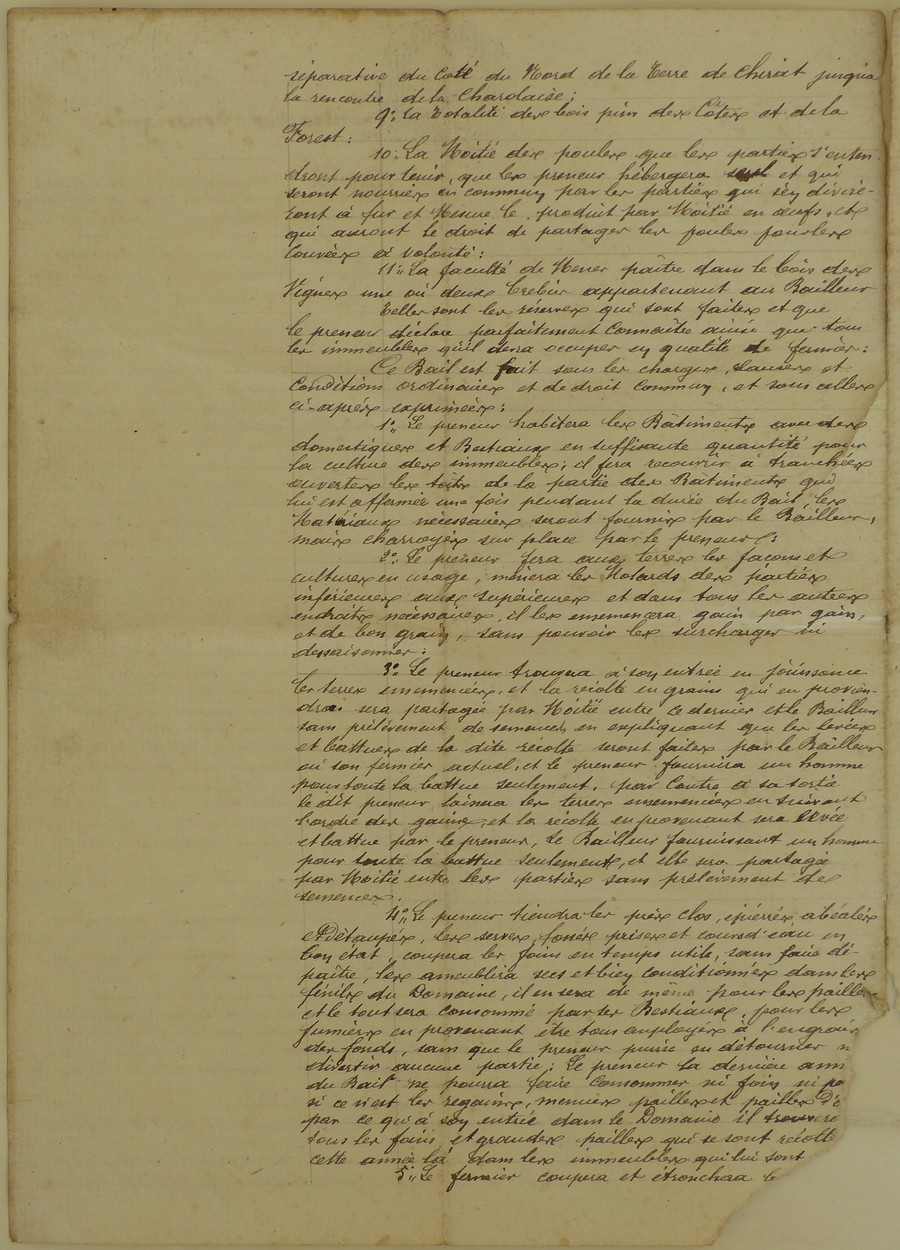 séparative du Coté du Nord de la Terre de Chirat jusqu'a
la rencontre de la Charolaise;
9° La Totalité des bois pins des Côtes et de la
Forest:
10° La Moitié des poules que les parties s'enten-
dront pour tenir, que les preneur hébergera seul et qui
seront nourries en commun par les parties qui s'en divise-
ront à fur et Mesure le produit par Moitié en œufs, et
qui auront le droit de partager les poules pour les
Couvées à volonté:
11° La faculté de Mener paître dans le bois des
Vignes une où deux brebis appartenant au Bailleur
Telles sont les réserves qui sont faites et que
le preneur déclare parfaitement Connaître ainsi que tous
les immeubles qu'il devra occuper en qualité de fermier:
Ce Bail est fait sous les charges, clauses et
Conditions ordinaires et de droit Commun, et sous celles
ci-après exprimées:
1° Le preneur habitera les Bâtiments avec des
domestiques et Bestiaux en suffisante quantité pour
la culture des immeubles; il fera recourir à tranchées
ouvertes les toits de la partie des Bâtiments qui
lui est affermée une fois pendant la durée du Bail, les
Matériaux nécessaires seront fournis par le Bailleur,
mais charroyés sur place par le preneur:
2° Le preneur fera aux terres les façons et
cultures en usage, mènera les Molards des parties
inférieures aux supérieures et dans tous les autres
endroits nécessaires, il les ensemencera gain par gain,
et de bon grain, sans pouvoir les surcharger ni
dessaisonner:
3° Le preneur trouvera à son entrée en jouissance
les terres ensemencées, et la récolte en grains qui en provien-
dra sera partagée par Moitié entre ce dernier et le Bailleur
sans prélèvement de semences, en expliquant que les levées
et battues de la dite récolte seront faites par le Bailleur
ou son fermier actuel, et le preneur fournira un homme
pour toute la battue seulement, par Contre à sa sortie
le dit preneur laissera les terres ensemencées en suivant
l'ordre des gains, et la récolte en provenant sera levée
et battue par le preneur, le Bailleur fournissant un homme
pour toute la battue seulement, et elle sera partagée
par Moitié entre les parties sans prélèvement de
semences.
4° Le preneur tiendra les prés clos, épierrés, abéalés
et détaupés, les serves, fossés, prises et cours d'eau en
bon état, coupera les foins en temps utile, sans faire dé-
paître, les ameublira secs et bien conditionnés dans les
fénils du Domaine, il en sera de même pour les pailles
et le tout sera consommé par ses Bestiaux, pour les
fumiers en provenant être tous employés à l'engrais
des fonds, sans que le preneur puisse en détourner n
divertir aucune partie: Le preneur la dernière ann
du Bail ne pourra faire Consommer ni foin ni pa
si ce n'est les regains, menues pailles et pailles
par ce qu'à son entrée dans le Domaine il
tous les foins et grandes pailles qui se sont récolté
cette année là dans les immeubles qui lui sont
5° Le fermier coupera et étronchera le